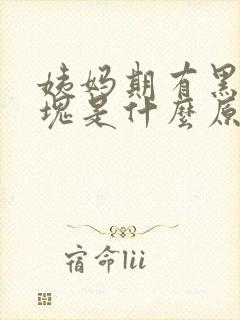 姨妈期有黑
块是什麼原
宿命lii